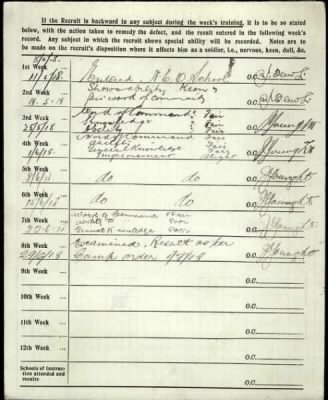 If the Recruit is backward in any subject during the week's training, it is to be so stated
below, with the action taken to remedy the defect, and the result entered in the following week's
record. Any subject in which the recruit shows special ability will be recorded. Notes are to
be made on the recruit's disposition where it affects him as a soldier, i.e., nervous, keen, dull, &c.
1st Week ...
11/5/18.
Entered N.C.O. School
O.C.
2nd Week ...
18.5.18
Shows ability Keen
word of command
O.C.
3rd Week ...
25/5/18
Word of Command : Fair
Knowledge : Fair
ability : Fair
O.C. Young
4th Week ...
1/6/18.
Word of Command Fair
ability Fair
General Knowledge Fair
Improvement slight
O.C. Young
5th Week ...
8/6/18.
do do
O.C. Young
6th Week ...
do do
O.C. Young
7th Week ...
22.6.18
Word of Command Fair
ability Poor
General Knowledge Poor
O.C. Young
8th Week ...
29/6/18
Examined. Result as per
Camp order
O.C. Young
9th Week ...
O.C.
10th Week ...
O.C.
11th Week ...
O.C.
12th Week ...
O.C.
Schools of Instruc-
tion attended and
results